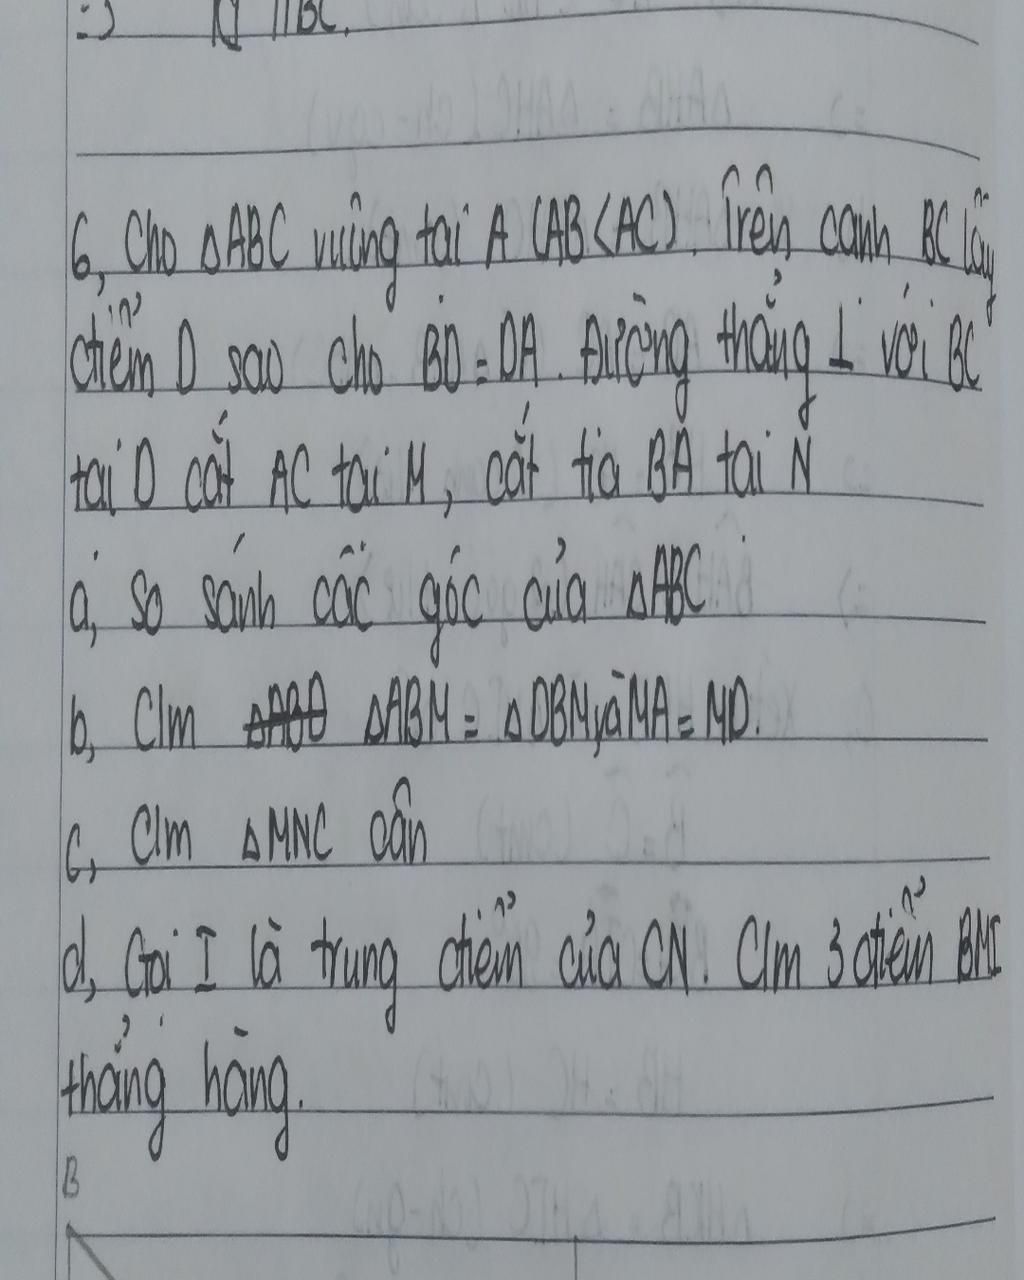 => KJ // BC.
6, Cho △ABC vuông tại A (AB<AC). Trên cạnh BC lấy
điểm D sao cho BD = DA. Đường thẳng ⊥ với BC
tại D cắt AC tại M, cắt tia BA tại N
a, So sánh các góc của △ABC
b, C/m △ABM = △DBM, và MA = MD.
c, C/m △MNC cân
d, Gọi I là trung điểm của CN. C/m 3 điểm BMI
thẳng hàng.
B